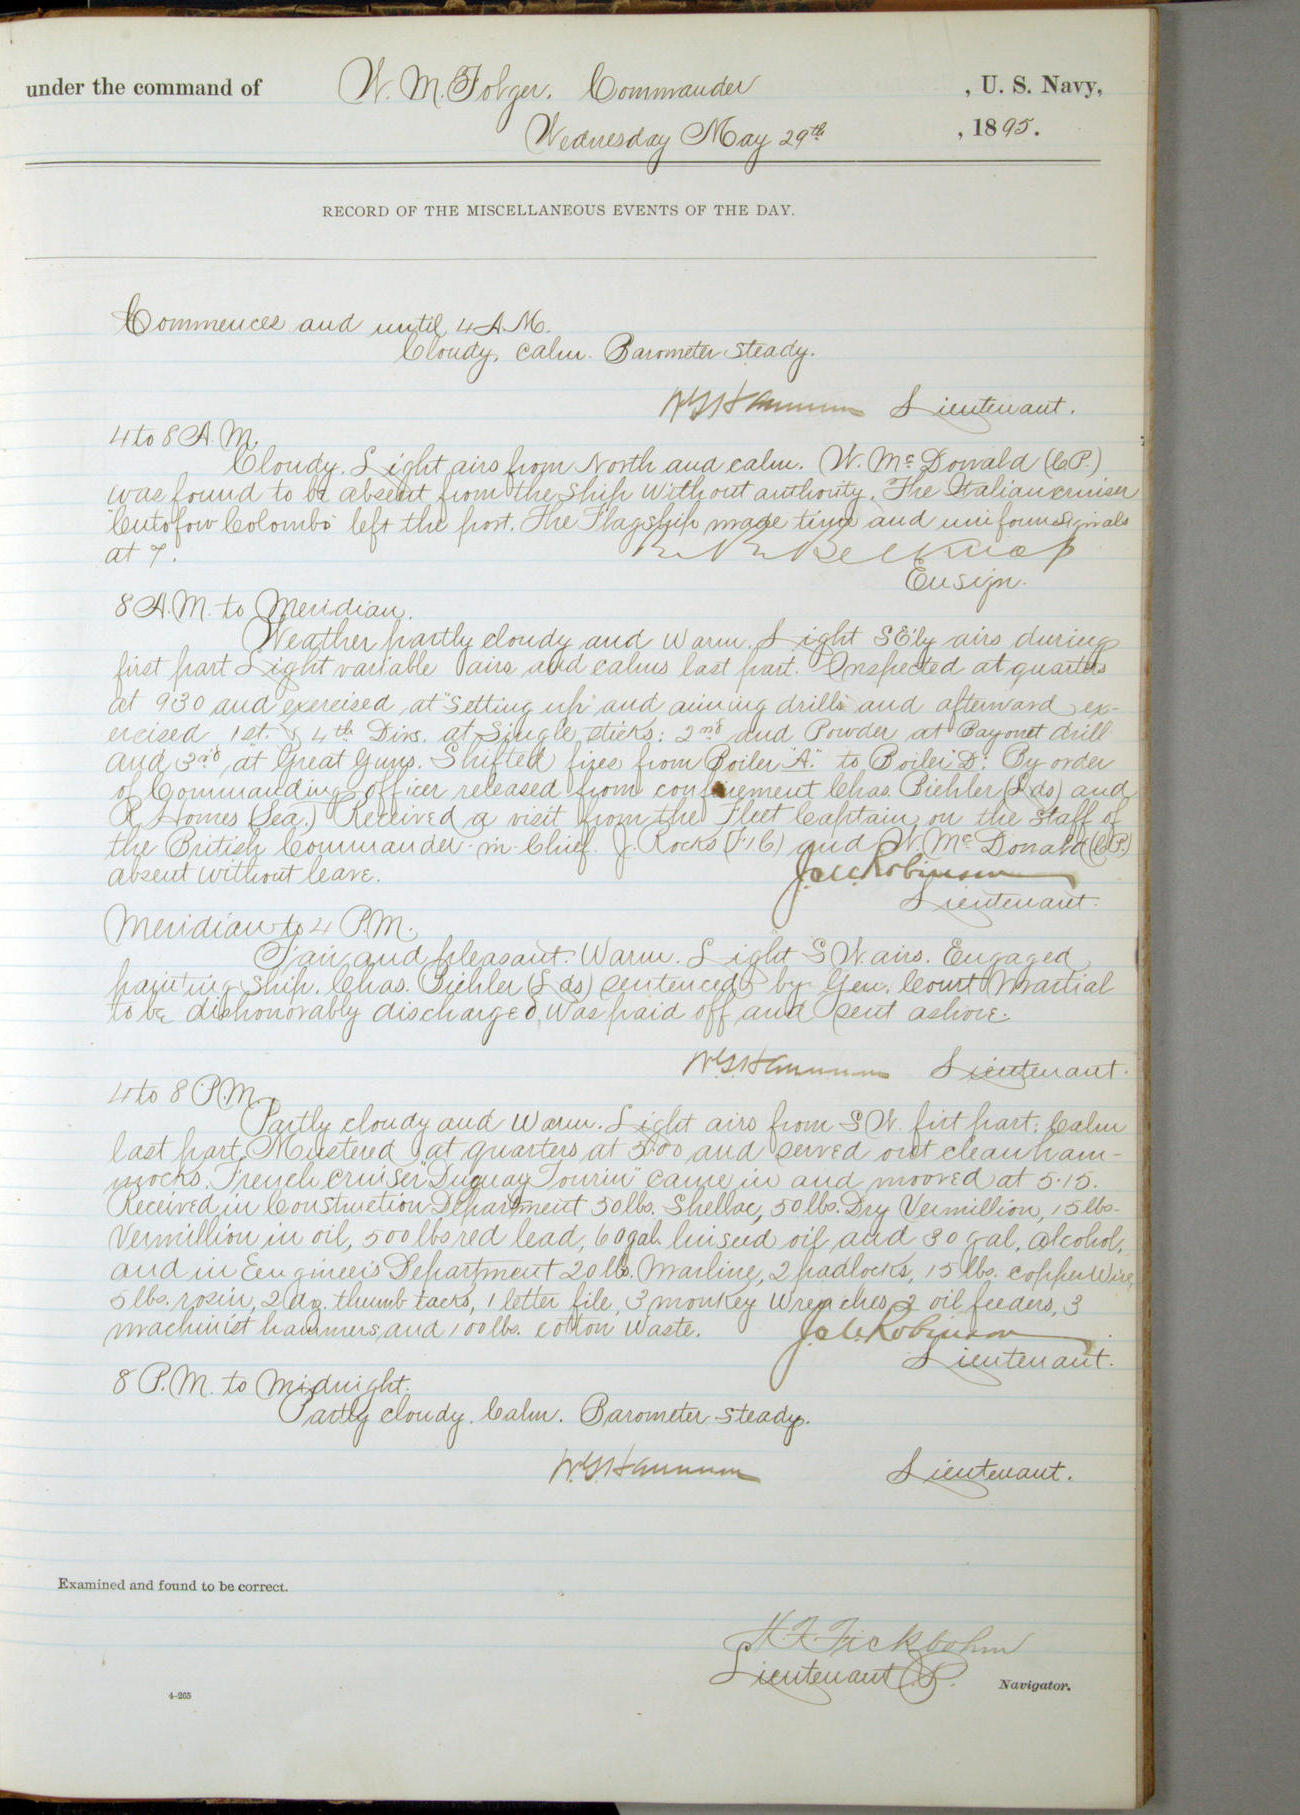 under the command of W. M. Folger, Commander , U. S. Navy,
Wednesday May 29th , 1895.
RECORD OF THE MISCELLANEOUS EVENTS OF THE DAY.
Commences and until 4 A.M.
Cloudy, calm. Barometer steady.
Lieutenant.
4 to 8 A.M.
Cloudy. Light airs from North and calm. W. McDonald (C.P.)
was found to be absent from the ship without authority. The Italian cruiser
"Cristofow Colombo" left the port. The Flagship made time and uniform signals
at 7. R R Belknap
Ensign.
8 A.M. to Meridian.
Weather partly cloudy and warm. Light SE'ly airs during
first part Light variable airs and calms last part. Inspected at quarters
at 930 and exercised at "Setting up" and aiming drills and afterward ex-
ercised 1st. & 4th Divs. at Single sticks: 2nd and Powder at Bayonet drill
and 3rd at Great Guns. Shifted fires from Boiler "A." to Boiler "D". By order
of Commanding officer released from confinement Chas. Biehler (Lds) and
R. Homes (Sea.) Received a visit from the Fleet Captain on the Staff of
the British Commander-in-Chief. J. Rocks (F1C) and W. McDonald (C.P.)
absent without leave. J.M. Robinson
Lieutenant.
Meridian to 4 P.M.
Fair and pleasant. Warm. Light SW. airs. Engaged
painting ship. Chas. Biehler (Lds) sentenced by Gen. Court Martial
to be dishonorably discharged, was paid off and sent ashore.
Lieutenant.
4 to 8 P.M.
Partly cloudy and warm. Light airs from SW. firt part; Calm
last part. Mustered at quarters at 5:00 and served out clean ham-
mocks. French cruiser "Duguay Tourin" came in and moored at 5.15.
Received in Construction Department 50 lbs. Shellac, 50 lbs. Dry Vermillion, 15 lbs.
Vermillion in oil, 500 lbs red lead, 60 gal. linseed oil and 30 gal. alcohol,
and in Engineer's Department 20 lbs. Marline, 2 padlocks, 15 lbs. copper wire,
5 lbs. rosin, 2 doz. thumb tacks, 1 letter file, 3 monkey wrenches, 2 oil feeders, 3
machinist hammers, and 100 lbs. cotton waste. J.M. Robinson
Lieutenant.
8 P.M. to Midnight.
Partly cloudy. Calm. Barometer steady.
Lieutenant.
Examined and found to be correct.
H. F. Fickbohm
Lieutenant
Navigator.
4-265